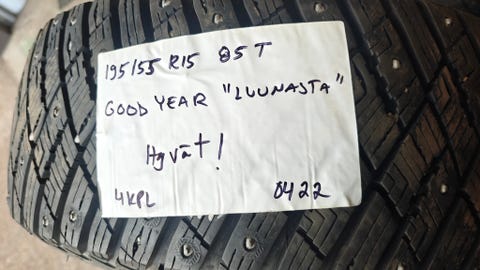 195/55 R15 85 T
GOOD YEAR "LUUNASTA"
Hyvät!
4KPL 0422